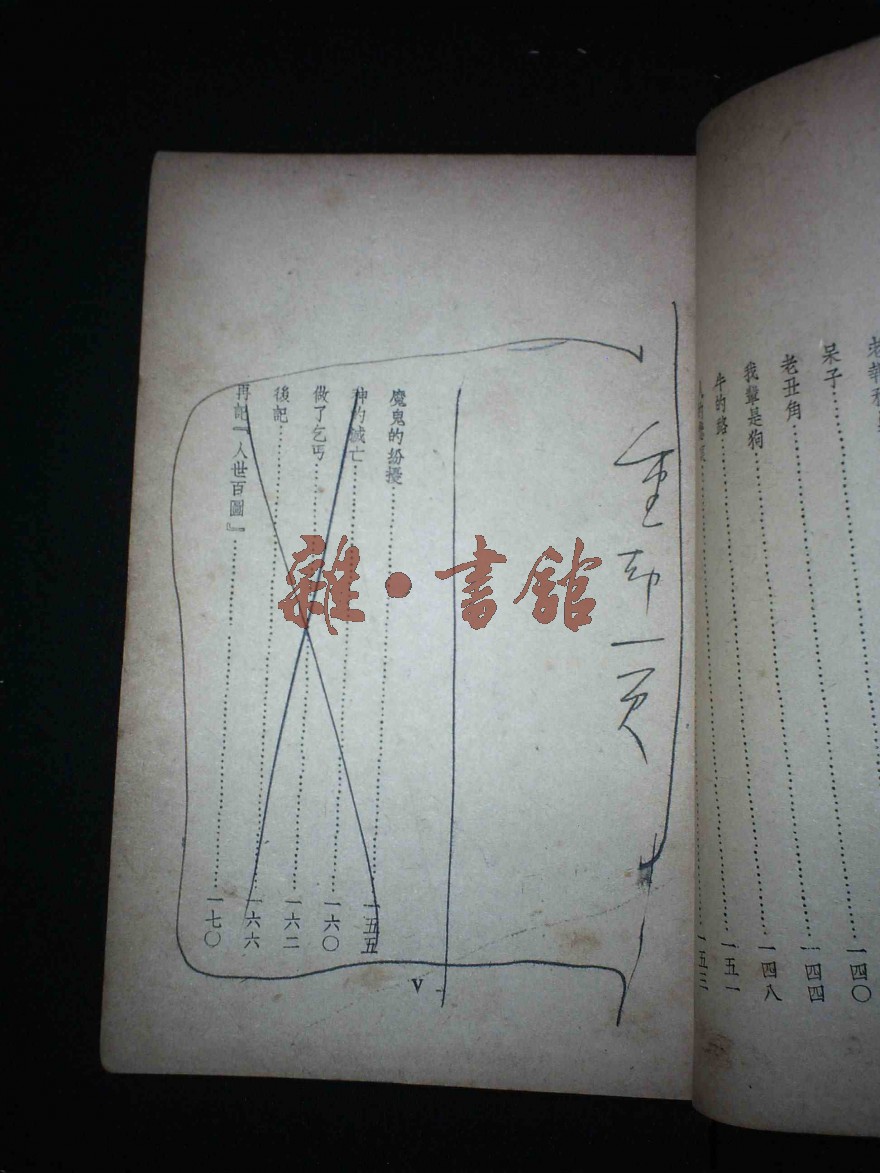 呆子⋯⋯一四〇
老丑角⋯⋯一四四
我輩是狗⋯⋯一四八
牛的路⋯⋯一五一
一五三
魔鬼的紛擾⋯⋯一五五
神的滅亡⋯⋯一六〇
做了乞丐⋯⋯一六二
後記⋯⋯一六六
再記『人世百圖』⋯⋯一七〇
V
重 一页
雜·書館